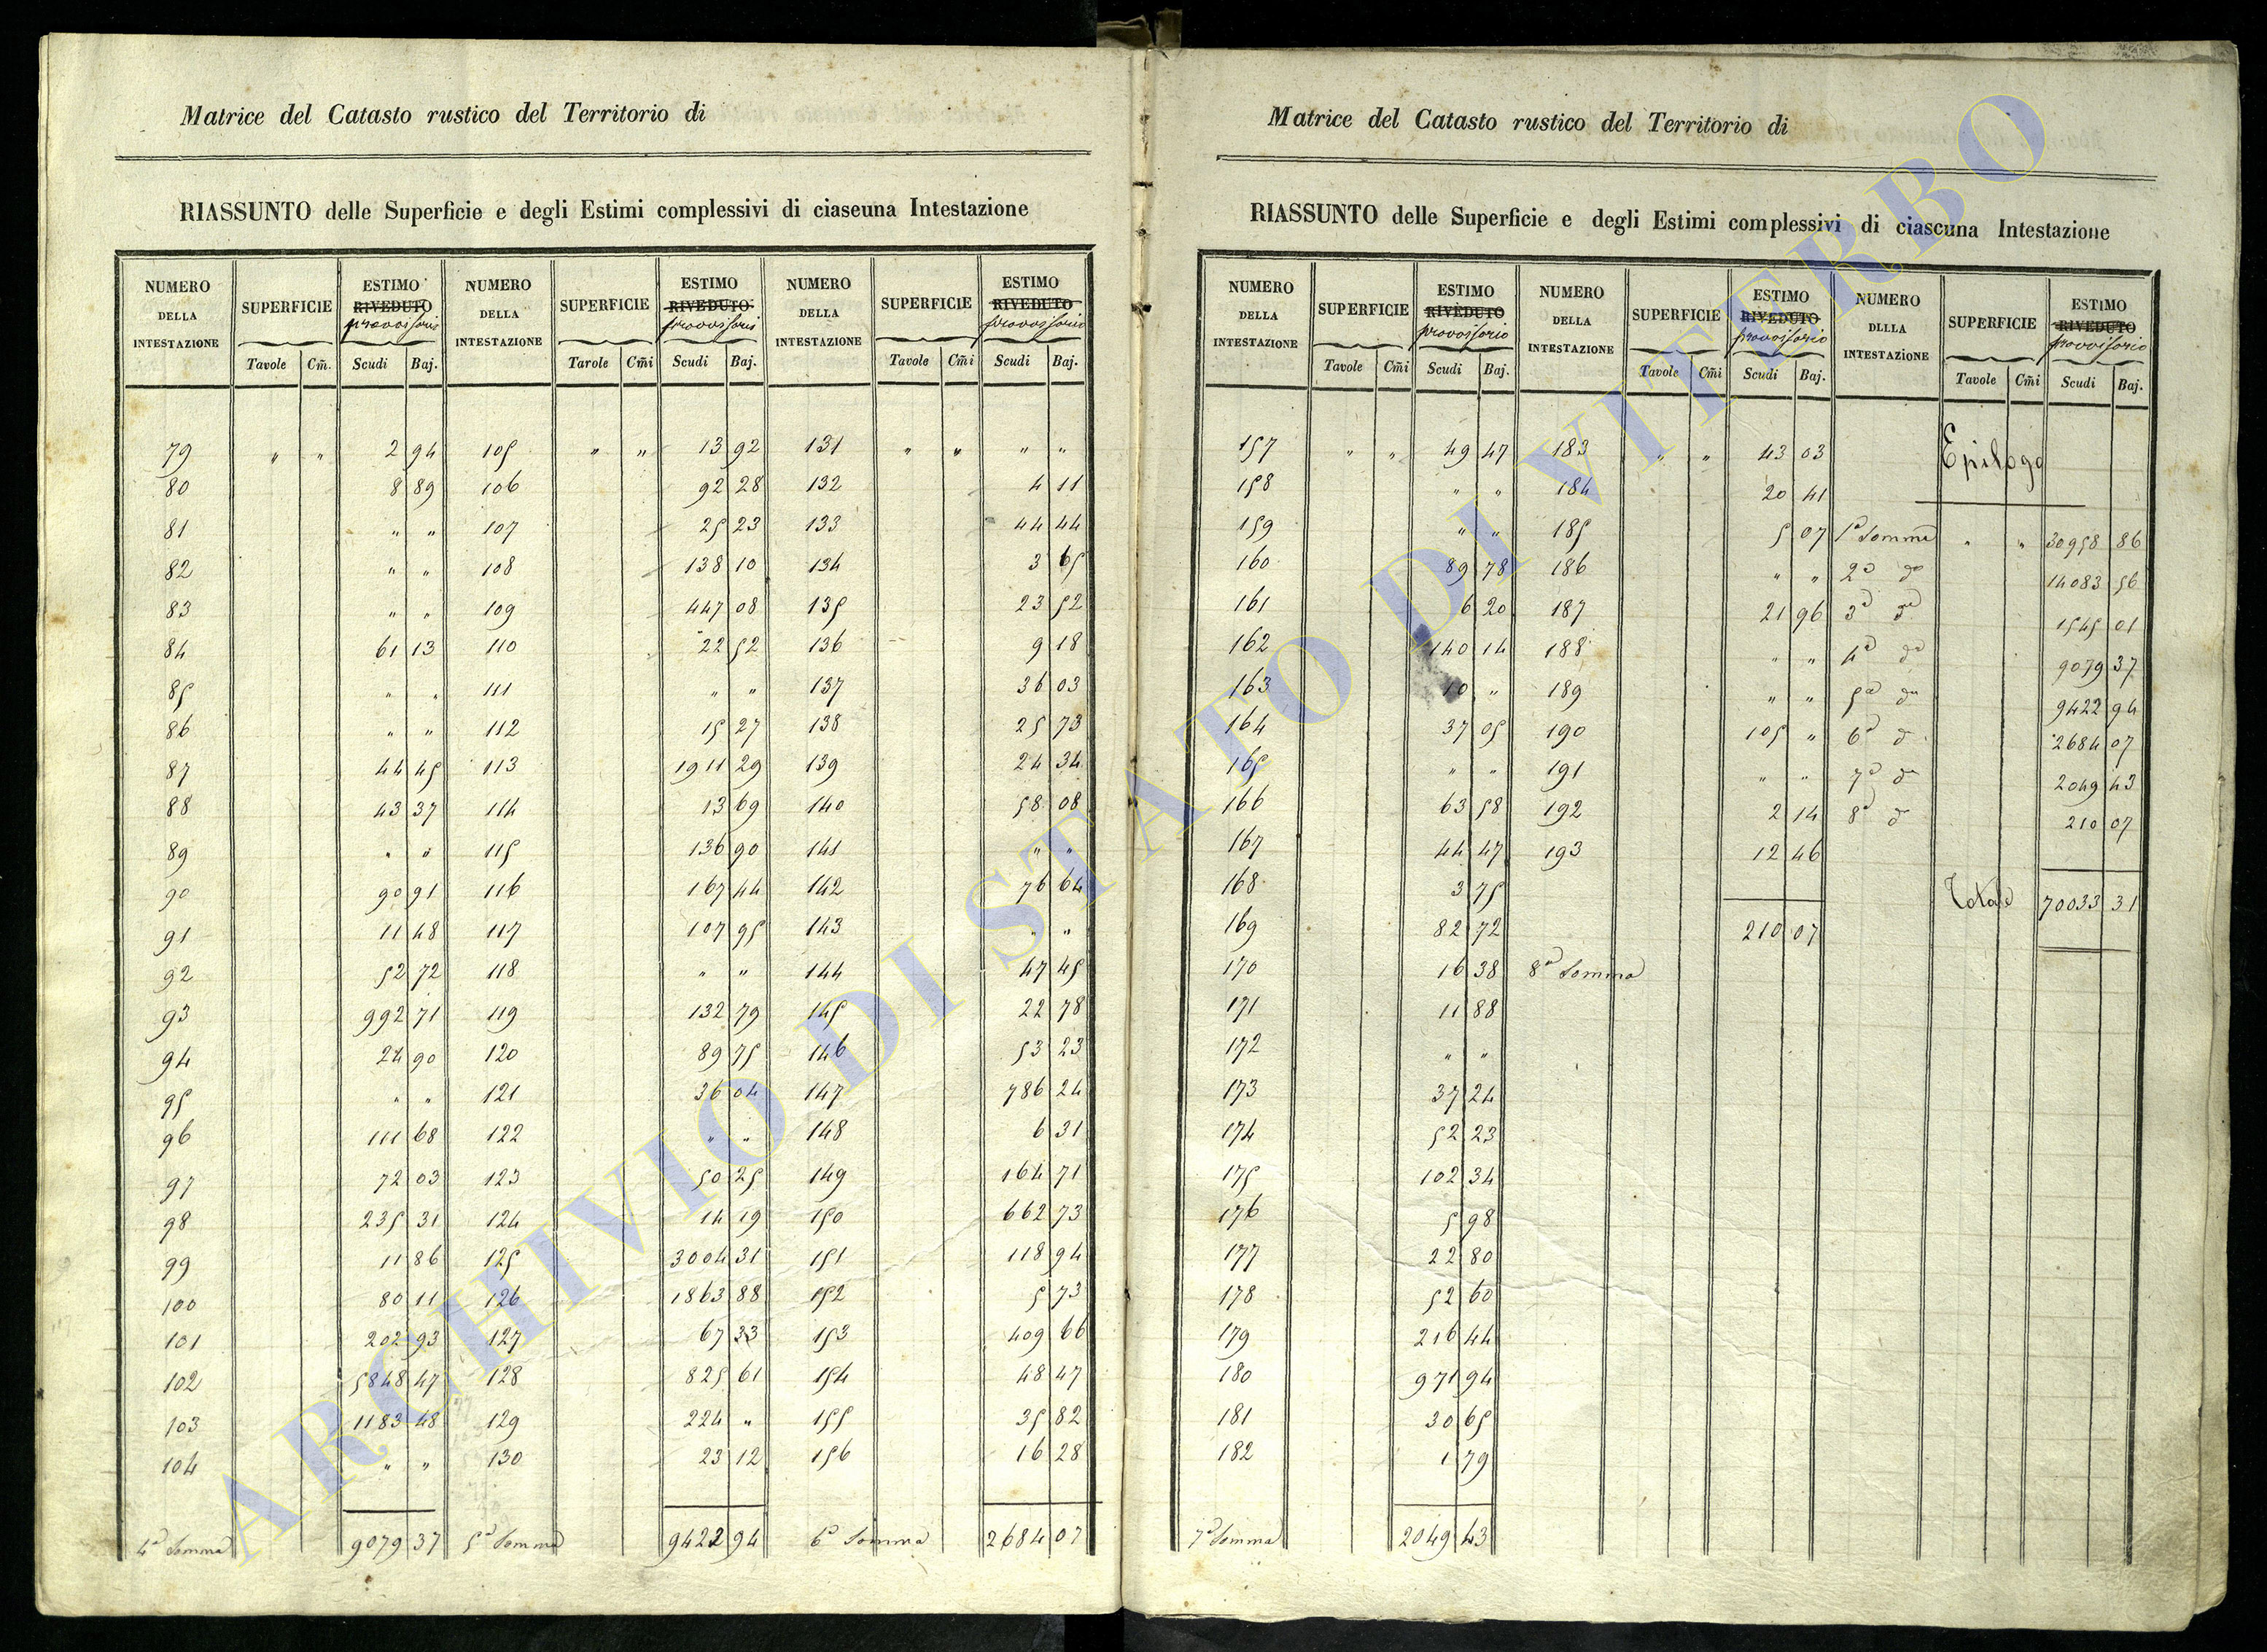 Matrice del Catasto rustico del Territorio di
RIASSUNTO delle Superficie e degli Estimi complessivi di ciaseuna Intestazione
NUMERO DELLA INTESTAZIONE SUPERFICIE ESTIMO RIVEDUTO provvisorio NUMERO DELLA INTESTAZIONE SUPERFICIE ESTIMO RIVEDUTO provvisorio NUMERO DELLA INTESTAZIONE SUPERFICIE ESTIMO RIVEDUTO provvisorio
Tavole Cm̃. Scudi Baj. Tavole Cm̃i Scudi Baj. Tavole Cm̃i Scudi Baj.
79 " " 2 94 105 " " 13 92 131 " " " "
80 8 89 106 92 28 132 4 11
81 " " 107 25 23 133 44 44
82 " " 108 138 10 134 3 65
83 " " 109 447 08 135 23 52
84 61 13 110 22 52 136 9 18
85 " " 111 " " 137 36 03
86 " " 112 15 27 138 25 73
87 44 45 113 1911 29 139 24 34
88 43 37 114 13 69 140 58 08
89 " " 115 136 90 141 " "
90 90 91 116 167 44 142 76 64
91 11 48 117 107 95 143 " "
92 52 72 118 " " 144 47 45
93 992 71 119 132 79 145 22 78
94 24 90 120 89 75 146 53 23
95 " " 121 36 04 147 786 24
96 111 68 122 " " 148 6 31
97 72 03 123 50 25 149 164 71
98 235 31 124 14 19 150 662 73
99 11 86 125 3004 31 151 118 94
100 80 11 126 1863 88 152 5 73
101 202 93 127 67 33 153 409 66
102 5848 47 128 825 61 154 48 47
103 1183 48 129 224 " 155 35 82
104 " " 130 23 12 156 16 28
4a Somma 9079 37 5a Somma 9422 94 6a Somma 2684 07
Matrice del Catasto rustico del Territorio di
RIASSUNTO delle Superficie e degli Estimi complessivi di ciascuna Intestazione
NUMERO DELLA INTESTAZIONE SUPERFICIE ESTIMO RIVEDUTO provvisorio NUMERO DELLA INTESTAZIONE SUPERFICIE ESTIMO RIVEDUTO provvisorio NUMERO DLLLA INTESTAZIONE SUPERFICIE ESTIMO RIVEDUTO provvisorio
Tavole Cm̃i Scudi Baj. Tavole Cm̃i Scudi Baj. Tavole Cm̃i Scudi Baj.
157 " " 49 47 183 " " 43 03 Epilogo
158 " " 184 20 41
159 " " 185 5 07 1a Somma " " 30958 86
160 89 78 186 " " 2a da 14083 56
161 6 20 187 21 96 3a da 1545 01
162 140 14 188 " " 4a da 9079 37
163 10 " 189 " " 5a da 9422 94
164 37 05 190 105 " 6a da 2684 07
165 " " 191 " " 7a da 2049 43
166 63 58 192 2 14 8a da 210 07
167 44 47 193 12 46
168 3 75 Totale 70033 31
169 82 72 210 07
170 16 38 8a Somma
171 11 88
172 " "
173 37 24
174 52 23
175 102 34
176 5 98
177 22 80
178 52 60
179 216 44
180 971 94
181 30 65
182 1 79
7a Somma 2049 43
ARCHIVIO DI STATO DI VITERBO